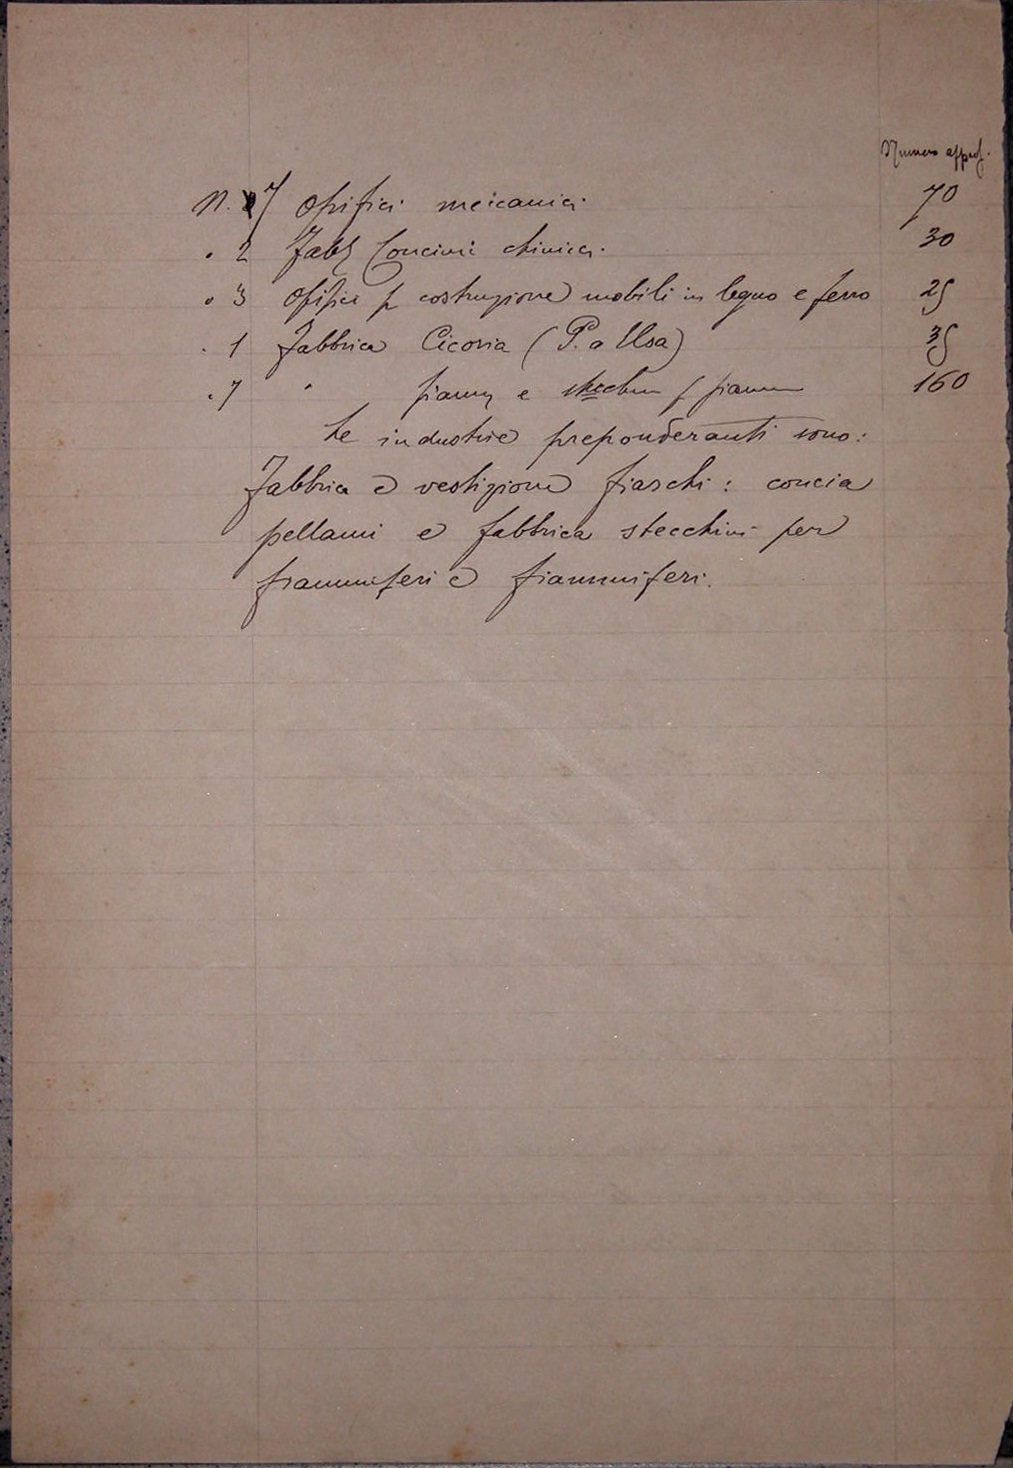 Numero approf.
N. 7 Opifici meccanici 70
" 2 Fabb Concimi chimici. 30
" 3 Opifici p costruzione mobili in legno e ferro 25
" 1 Fabbrica Cicoria (P. a Elsa) 35
" 7 " fiamm e stecchini p fiamm 160
Le industrie preponderanti sono:
Fabbrica e vestizione fiaschi: concia
pellami e fabbrica stecchini per
fiammiferi e fiammiferi.